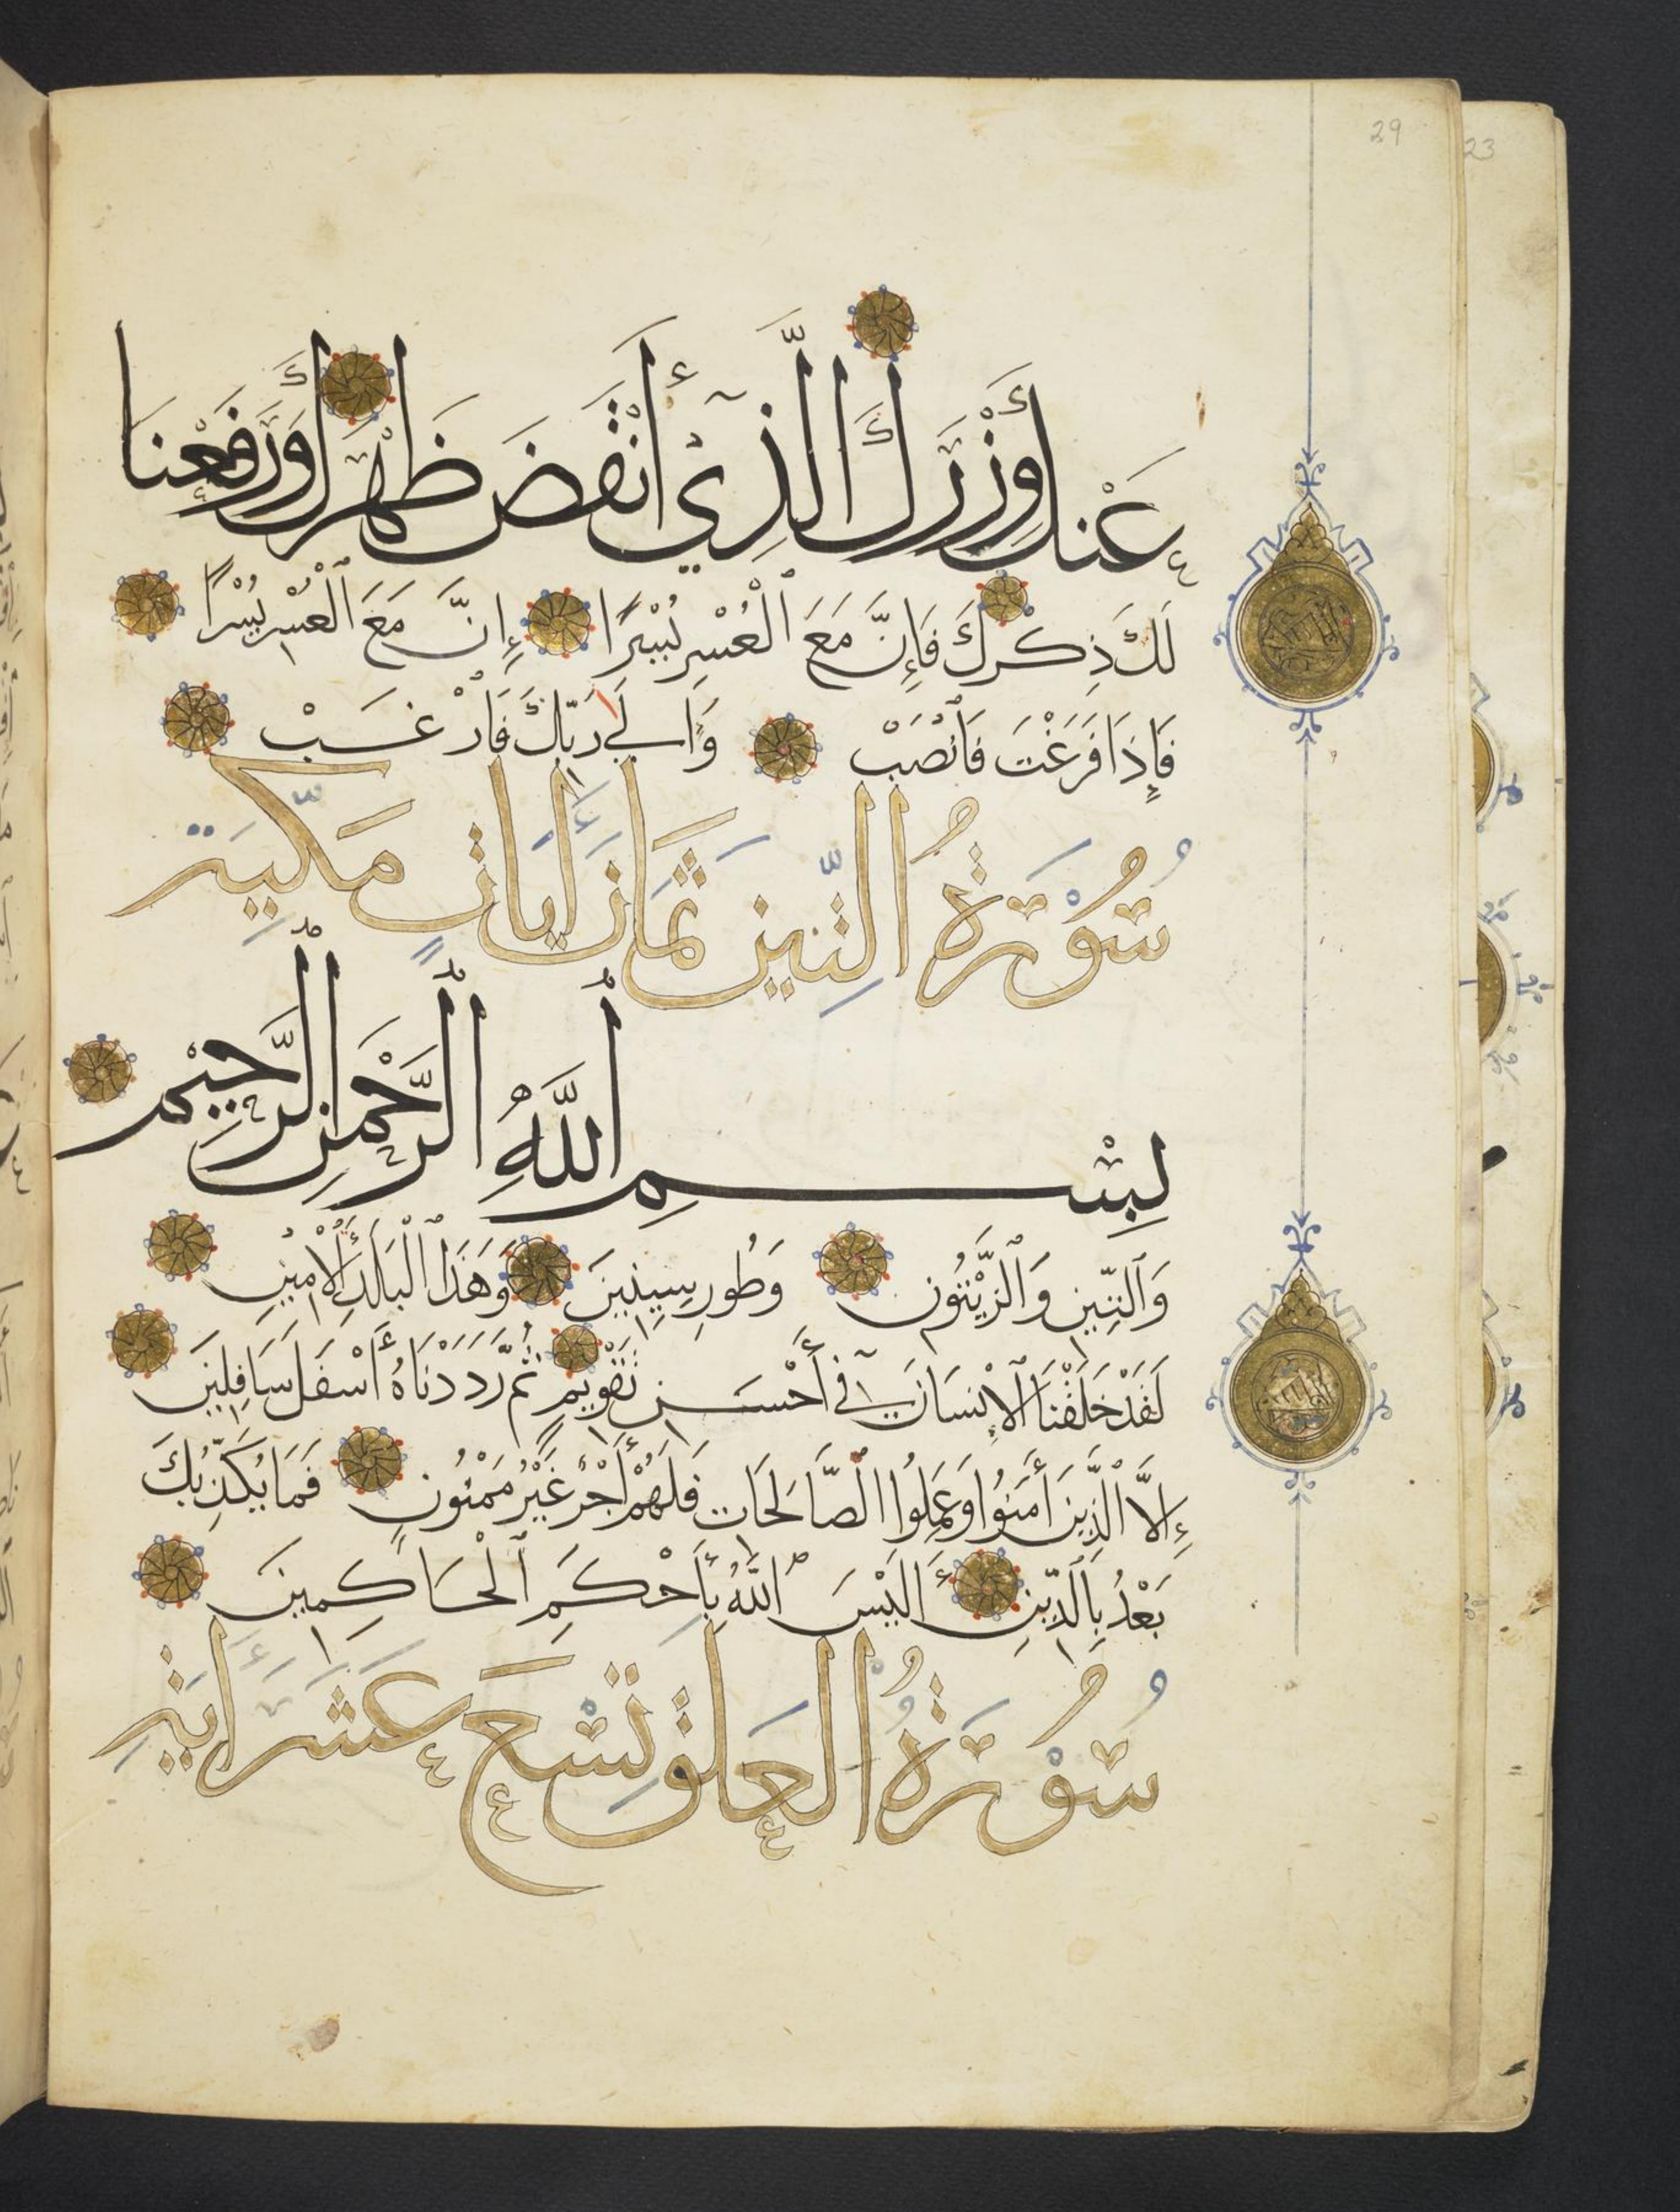 29
23
عَنكَ وِزْرَكَ الَّذِي أَنْقَضَ ظَهْرَكَ وَرَفَعْنَا
لَكَ ذِكْرَكَ فَإِنَّ مَعَ ٱلْعُسْرِ يُسْرًا إِنَّ مَعَ ٱلْعُسْرِ يُسْرًا
فَإِذَا فَرَغْتَ فَٱنْصَبْ وَإِلَىٰ رَبِّكَ فَارْغَبْ
سُورَةُ التِّينِ ثَمَانِ آيَاتٍ مَكِّيَّة
بِسْمِ ٱللَّهِ ٱلرَّحْمَنِ ٱلرَّحِيمِ
وَٱلتِّينِ وَٱلزَّيْتُونِ وَطُورِ سِينِينَ وَهَذَا ٱلْبَلَدِ ٱلْأَمِينِ
لَقَدْ خَلَقْنَا ٱلْإِنْسَانَ فِي أَحْسَنِ تَقْوِيمٍ ثُمَّ رَدَدْنَاهُ أَسْفَلَ سَافِلِينَ
إِلَّا ٱلَّذِينَ أَمَنُوا وَعَمِلُوا ٱلصَّالِحَاتِ فَلَهُمْ أَجْرٌ غَيْرُ مَمْنُونٍ فَمَا يُكَذِّبُكَ
بَعْدُ بِٱلدِّينِ أَلَيْسَ ٱللَّهُ بِأَحْكَمِ ٱلْحَاكِمِينَ
سُورَةُ الْعَلَقِ تِسْعَ عَشَرَ أَيَةٍ